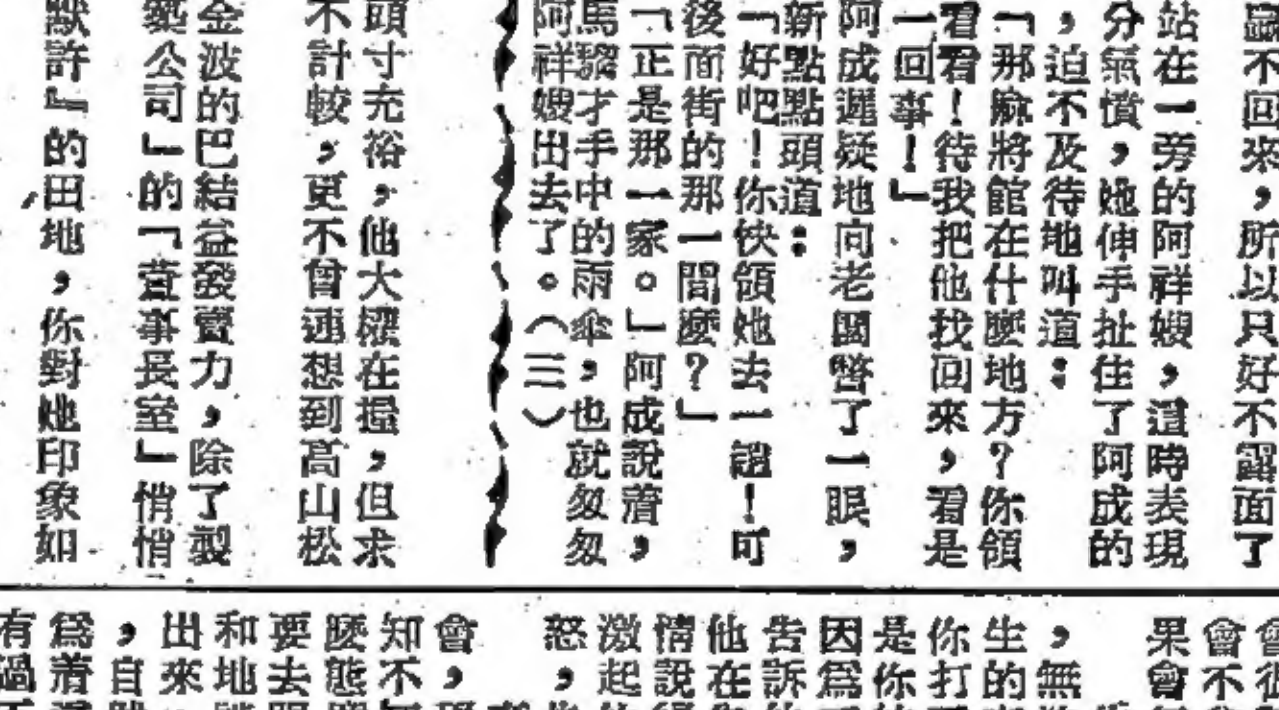 不回來，所以只好不露面了
站在一旁的阿祥嫂，這時表現
分氣憤，她伸手扯住了阿成的
，迫不及待地叫道：
「那麻將館在什麼地方？你領
看看！待我把他找回來，看是
一回事！」
阿成遲疑地向老闆瞥了一眼，
新點點頭道：
「好吧！你快領她去一趟！可
後面街的那一間麼？」
「正是那一家。」阿成說着，
馬騮才手中的雨傘，也就匆匆
阿祥嫂出去了。（三）
頭寸充裕，他大權在握，但求
不計較，更不曾連想到高山松
金波的巴結益發賣力，除了製
藥公司」的「董事長室」悄悄
默許』的田地，你對她印象如
會
會不
果會
，無
生的
你打
是你
因爲
告訴
他在
情說
激起
怒，
會，
知不
麼態
要去
和地
出來
，自
爲着
有過